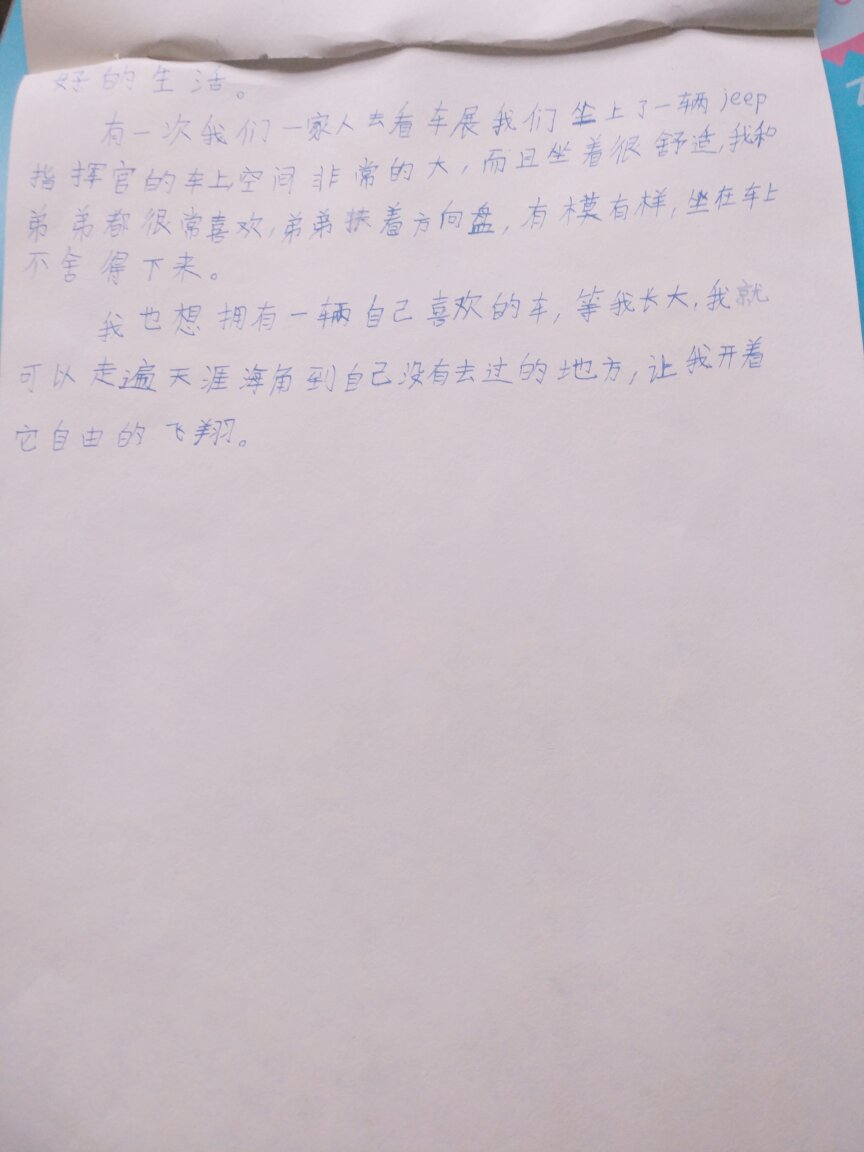 好的生活。
有一次我们一家人去看车展我们坐上了一辆jeep
指挥官的车上,空间非常的大,而且坐着很舒适,我和
弟弟都很常喜欢,弟弟扶着方向盘,有模有样,坐在车上
不舍得下来。
我也想拥有一辆自己喜欢的车,等我长大,我就
可以走遍天涯海角到自己没有去过的地方,让我开着
它自由的飞翔。